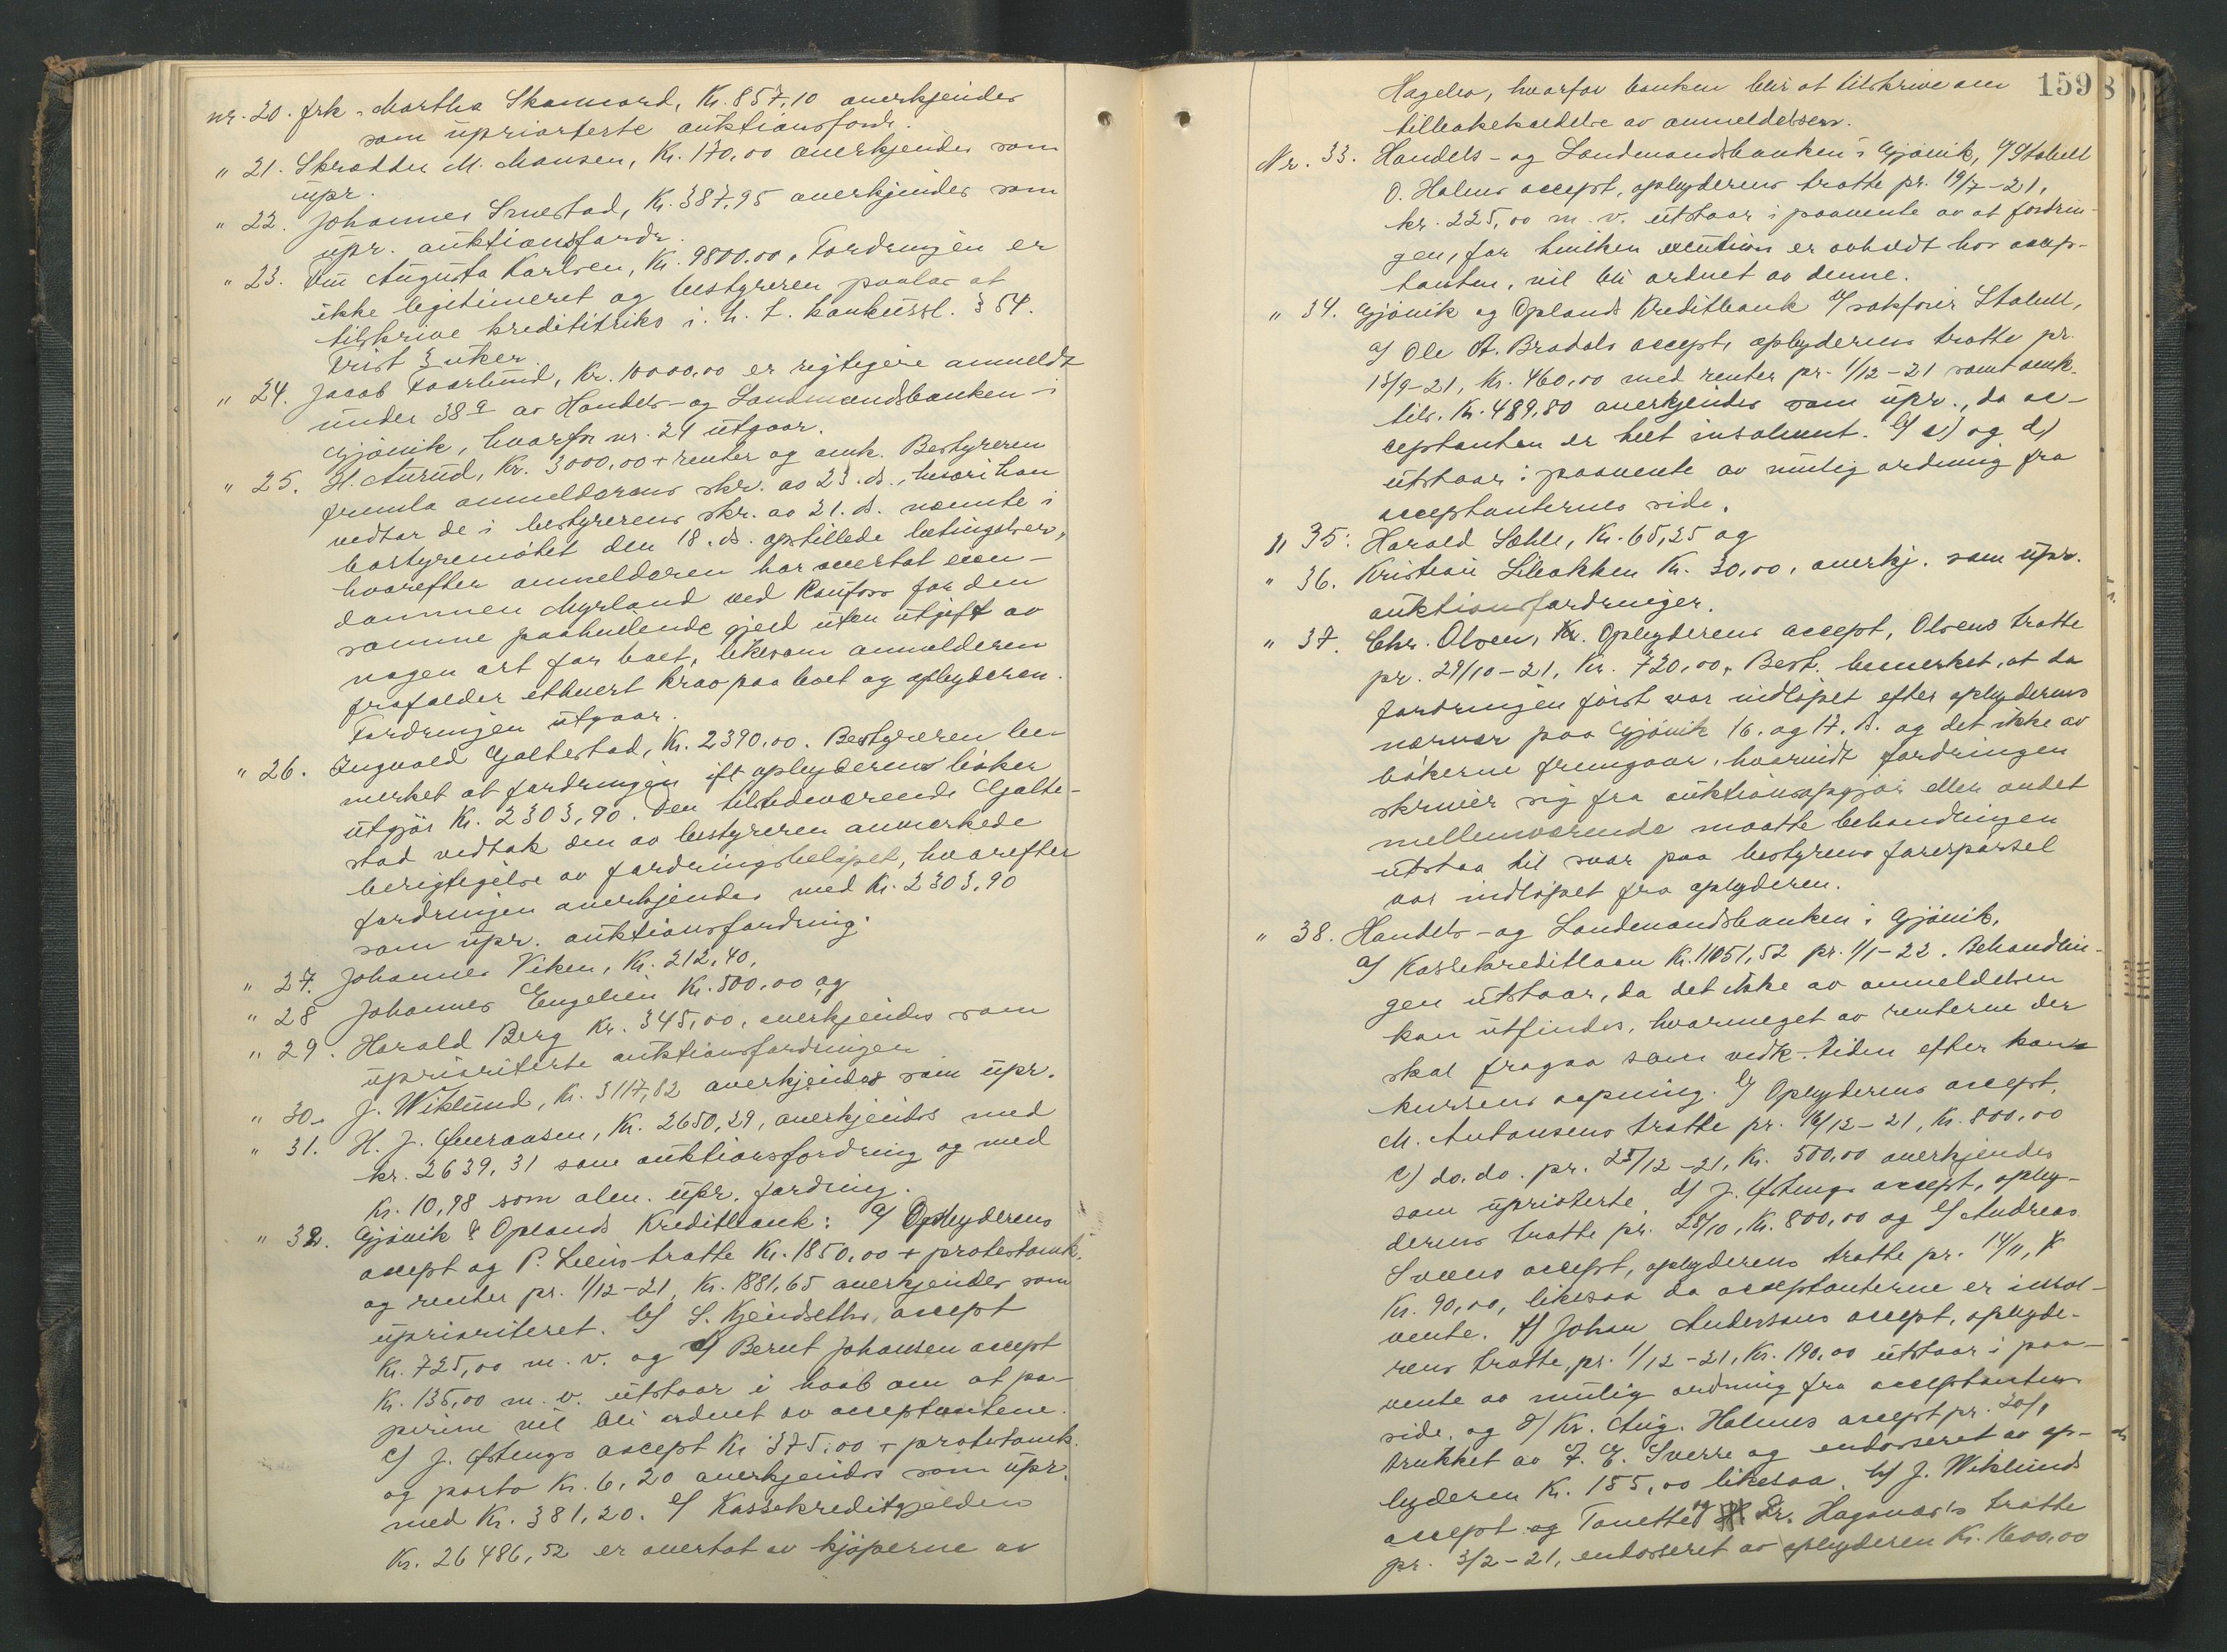 nr. 20. frk. Martha Skammerd, Kr. 857,10 anerkjendes
som upriorterte auktionsfordr.
" 21. Skrædder M. Mansen, Kr. 170,00 anerkjendes som
upr.
" 22. Johannes Smestad, Kr. 387,95 anerkjendes som
upr. auktionsfordr.
" 23. Fru Augusta Karlsen, Kr. 9800.00. Fordringen er
ikke legitimeret og bestyreren paalas at
tilskrive kredititriks i. h. t. konkursl. § 54.
Frist 3 uker.
" 24. Jacob Faarlund, Kr. 10000,00 er rigtigere anmeldt
under 38 a av Handels- og Landmandsbanken i
Gjøvik, hvorfor nr. 24 utgaar.
" 25. H. Aurud, Kr. 3000,00 + renter og omk. Bestyreren
fremla anmelderens skr. av 23. ds., hvori han
vedtar de i bestyrerens skr. av 21. ds. nævnte i
bostyremøtet den 18. ds. opstillede betingelser,
hvorefter anmelderen har overtat eien-
dommen Myrland ved Raufoss for den
samme paahvilende gjeld uten utgift av
nogen art for boet, likesom anmelderen
frafalder ethvert krav paa boet og opbyderen.
Fordringen utgaar.
" 26. Ingvald Galtestad, Kr. 2390,00. Bestyreren be-
merket at fordringen ift opbyderens bøker
utgjør Kr. 2303,90. Den tilstedeværende Galte-
stad vedtok den av bestyreren anmerkede
berigtigelse av fordringsbeløpet, hvorefter
fordringen anerkjendes med Kr. 2303,90
som upr. auktionsfordring.
" 27. Johannes Viken, Kr. 212,40,
" 28 Johannes Engelien Kr. 500,00 og
" 29. Harald Berg Kr. 345,00, anerkjendes som
uprioriterte auktionsfordringer
" 30. J. Wiklund, Kr. 3117,82 anerkjendes som upr.
" 31. H. J. Øveraasen, Kr. 2650,29, anerkjendes med
kr. 2639,31 som auktionsfordring og med
Kr. 10,98 som alm. upr. fordring.
" 32. Gjøvik & Oplands Kreditbank: a/ Opbyderens
accept og P. Liens tratte Kr. 1850,00 + protestomk.
og renter pr. 1/12-21, Kr. 1881,65 anerkjendes som
uprioriteret. b/ S. Kjendseths accept
Kr. 725,00 m. v. og d/ Bernt Johansen accept
Kr. 135,00 m. v. utstaar i haab om at pa-
pirene vil bli ordnet av acceptantene.
c/ J. Østengs accept Kr. 375,00 + protestomk.
og porto Kr. 6,20 anerkjendes som upr.
med Kr. 381,20. e/ Kassekreditgjelden
Kr. 26486,52 er overtat av kjøperne av
159
Hageler, hvorfor banken blir at tilskrive om
tilbakekaldelse av anmeldelsen.
Nr. 33. Handels- og Landmandsbanken i Gjøvik, v/ Stabell
O. Holms accept, opbyderens tratte pr. 19/7-21,
kr. 225,00 m. v. utstaar i paavente av at fordrin-
gen, for hvilken execution er avholdt hos accep-
tanten, vil bli ordnet av denne.
" 34. Gjøvik og Oplands Kreditbank v/ sakfører Stabell,
a/ Ole A. Bradals accept, opbyderens tratte pr.
15/9-21, Kr. 460,00 med renter pr. 1/12-21 samt omk.
tils. Kr. 489,80 anerkjendes som upr., da ac-
ceptanten er helt insolvent. b/ c/ og d/
utstaar i paavente av mulig ordning fra
acceptanternes side.
" 35. Harald Sæhle, Kr. 65,25 og
" 36. Kristian Libakken Kr. 30,00, anerkj. som upr.
auktionsfordringer.
" 37. Chr. Olsen, Kr. Opbyderens accept, Olsens tratte
pr. 29/10-21, Kr. 720,00. Best. bemerket, at da
fordringen først var indløpet efter opbyderens
nærvær paa Gjøvik 16. og 17. ds. og det ikke av
bøkerne fremgaar, hvorvidt fordringen
skriver sig fra auktionsopgjør eller andet
mellemværende maatte behandlingen
utstaa til svar paa bestyrens forespørsel
var indløpet fra opbyderen.
" 38. Handels- og Landmandsbanken i Gjøvik,
a/ Kassekreditlaan Kr. 11051,52 pr. 1/1-22. Behandlin-
gen utstaar, da det ikke av anmeldelsen
kan utfindes, hvormeget av renterne der
skal fragaa som vedk. tiden efter kon-
kursens aapning. b/ Opbyderens accept,
M. Antonsens tratte pr. 16/12-21, Kr. 800,00
c/ do. do. pr. 25/12-21, Kr. 500,00 anerkjendes
som uprioterte. d/ J. Østengs accept, opby-
derens tratte pr. 28/10, Kr. 800,00 og e/ Andreas
Sveens accept, opbyderens tratte pr. 14/11,
Kr. 90,00, likesaa da acceptanterne er insol-
vente. f/ Johan Andersens accept, opbyde-
rens tratte, pr. 1/12-21, Kr. 190,00 utstaar i paa-
vente av mulig ordning fra acceptanten
side, og g/ Kr. Aug. Holmes accept pr. 20/1
trukket av F. E. Sverre og endosseret av op-
byderen Kr. 155,00 likesaa. h/ J. Wiklunds
accept og Tanette og Pr. Hagavar's tratte
pr. 3/2-21, endosseret av opbyderen Kr. 1600,00